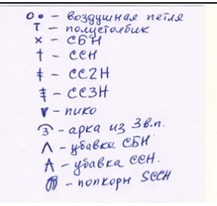 О • - воздушная петля
Т - полустолбик
× - СБН
† - ССН
ǂ - СС2Н
ǂ - СС3Н
- пико
- арка из 3 в.п.
Λ - убавка СБН
А - убавка ССН.
- попкорн 5ССН